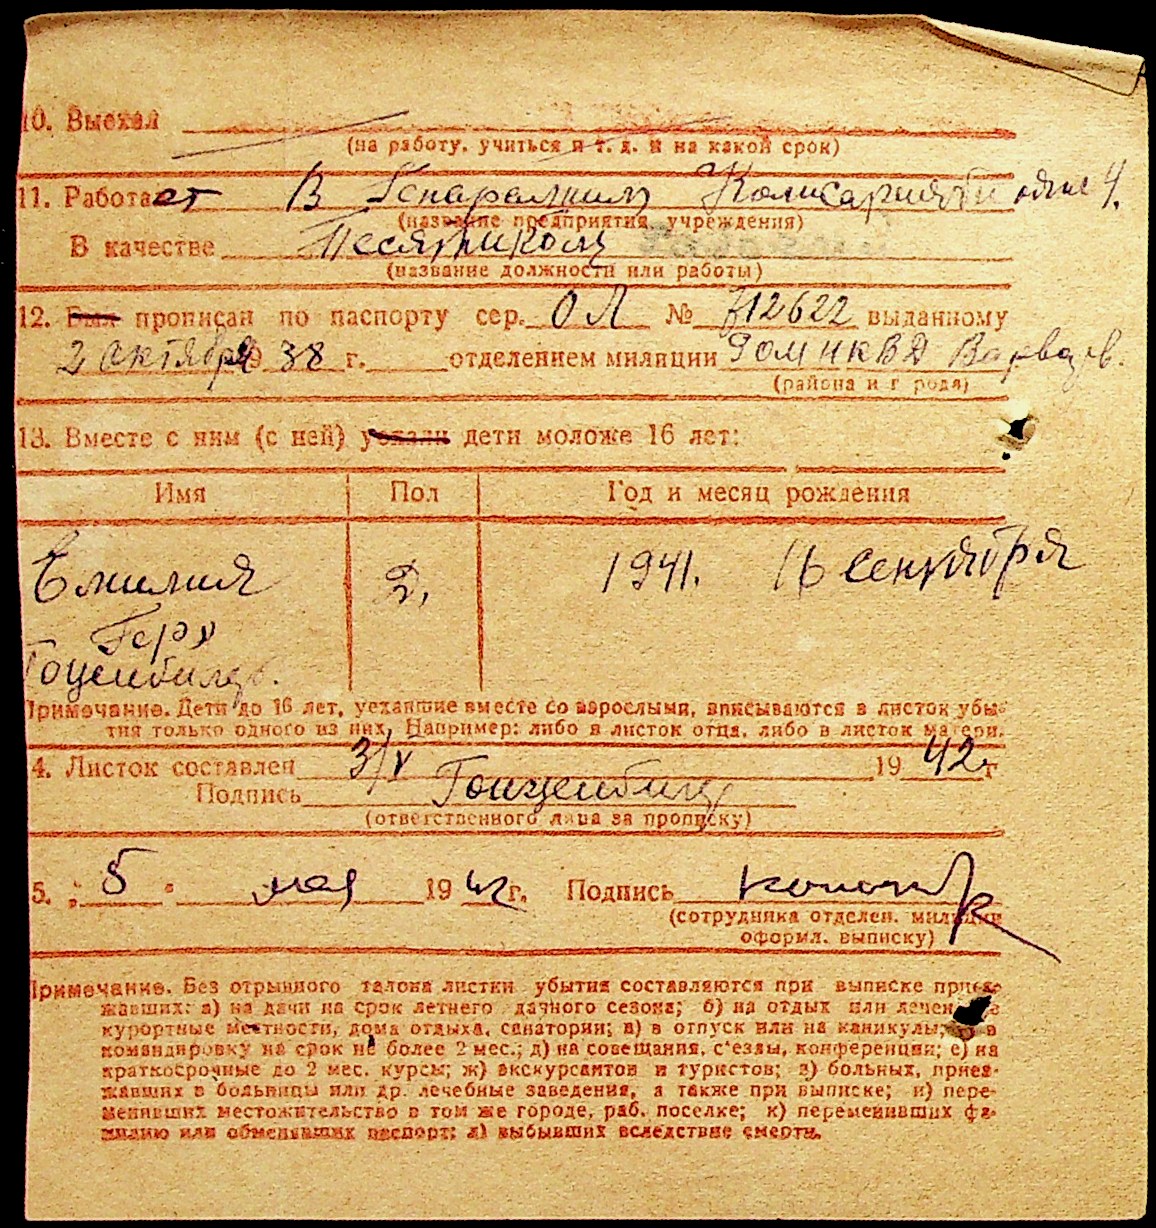 10. Выехал
(на работу, учиться и т. д. и на какой срок)
11. Работает В Генералним Комисарияти
(название предприятия, учреждения)
В качестве
(название должности или работы)
12. Был прописан по паспорту сер. ОЛ № 712622 выданному
2 октября 38 г. отделением милиции РОМ НКВД
(района и города)
13. Вместе с ним (с ней) уехали дети моложе 16 лет:
Имя Пол Год и месяц рождения
Емилия Д. 1941. 16 сентября
Герх
Гоценбилер.
Примечание. Дети до 16 лет, уехавшие вместе со взрослыми, вписываются в листок убы-
тия только одного из них. Например: либо в листок отца, либо в листок матери.
4. Листок составлен 3/V 1942 г
Подпись
(ответственного лица за прописку)
5. „5“ мая 1942 г. Подпись
(сотрудника отделен. милиции
оформл. выписку)
Примечание. Без отрывного талона листки убытия составляются при выписке приез-
жавших: а) на дачи на срок летнего дачного сезона; б) на отдых или лечен
курортные местности, дома отдыха, санатории; в) в отпуск или на каникулы; в
командировку на срок не более 2 мес.; д) на совещания, с'езды, конференции; е) на
краткосрочные до 2 мес. курсы; ж) экскурсантов и туристов; з) больных, приез-
жавших в больницы или др. лечебные заведения, а также при выписке; и) пере-
менивших местожительство в том же городе, раб. поселке; к) переменивших фа-
милию или обменявших паспорт; л) выбывших вследствие смерти.